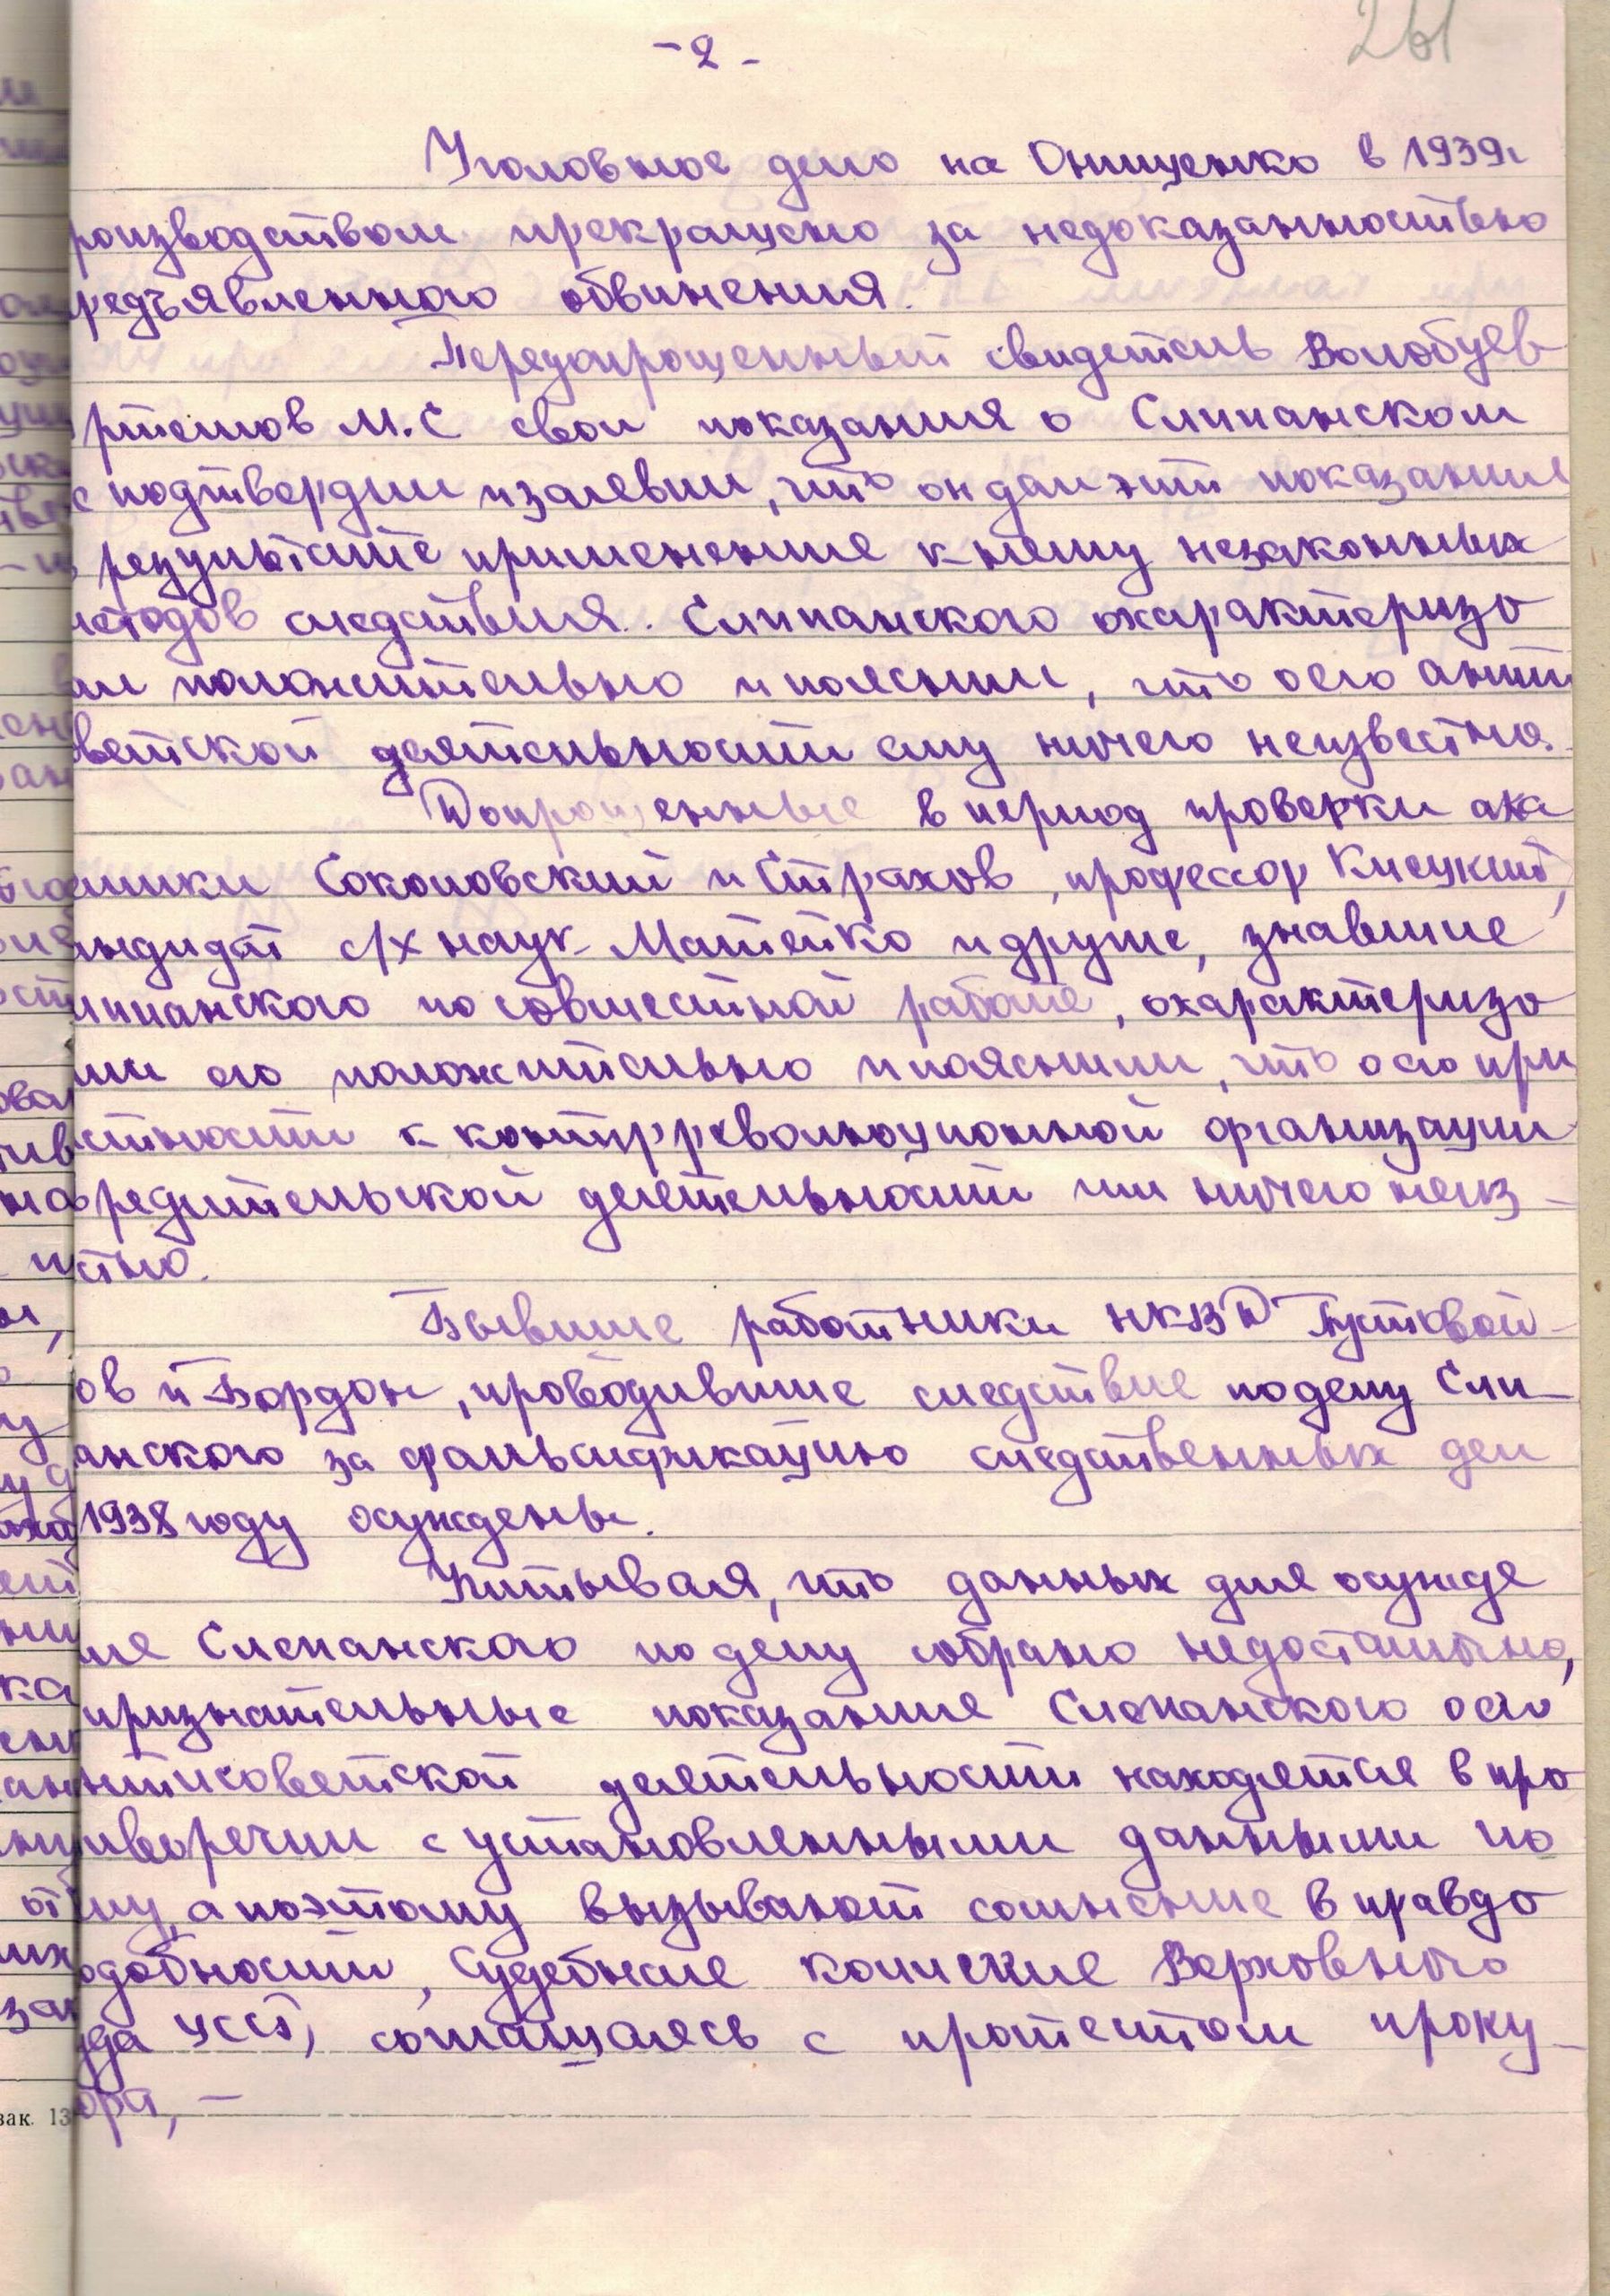 -2-
261
Уголовное дело на Онищенко в 1939г
роизводством прекращено за недоказанностью
редъявленного обвинения.
Передопрошенный свидетель Волобуев
ртемов М.С свои показания о Слипанском
е подтвердил и заявил, что он дал эти показания
результате применения к нему незаконных
етодов следствия. Слипанского охарактеризо
ал положительно и пояснил, что о его анти
ветской деятельности ему ничего неизвестно.
Допрошенные в период проверки ака
емики Соколовский и Страхов, профессор
андидат с/х наук Матейко и другие, знавшие
липанского по совместной работе, охарактеризо
али его положительно и пояснили, что о его при
астности к контрреволюционной организации
редительской деятельности им ничего неиз-
стно.
Бывшие работники НКВД Пустовой-
ов и Бордон, проводившие следствие по делу Сли-
анского за фальсификацию следственных дел
1938 году осуждены.
Учитывая, что данных для осужде
ия Слепанского по делу собрано недостаточно,
признательные показания Слепанского о его
антисоветской деятельности находятся в про
иворечии с установленными данными по
лу, а поэтому вызывают сомнение в правдо
одобности, Судебная коллегия Верховного
да УССР, соглашаясь с протестом проку-
ора, –
зак. 13